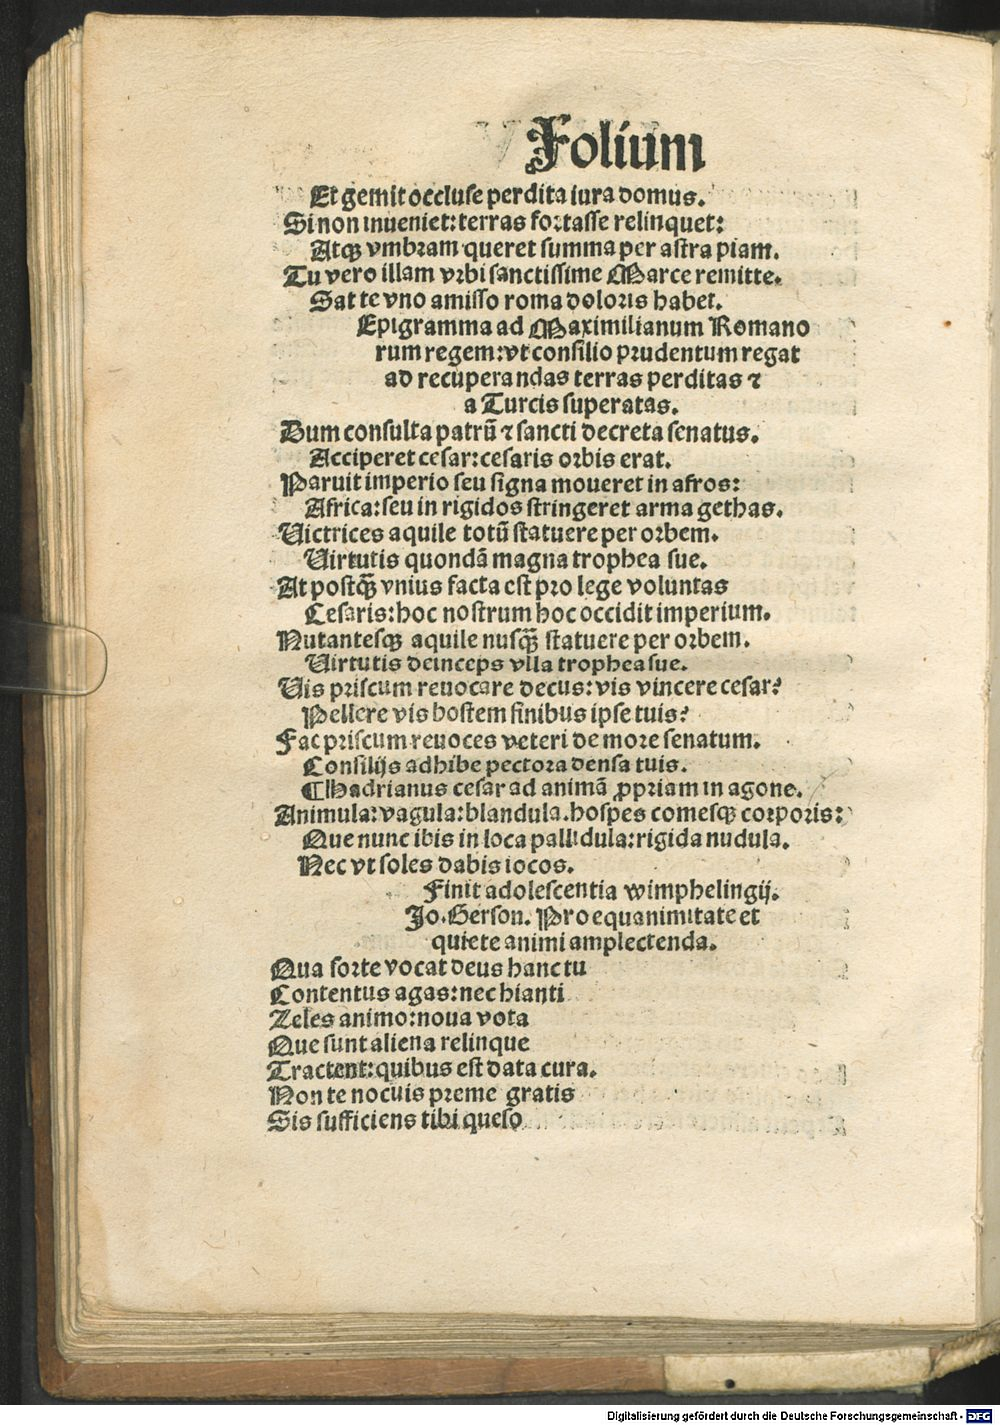 Folium
Et gemit occluse perdita iura domus.
Si non inueniet: terras fortasse relinquet:
Atqꝫ vmbram queret summa per astra piam.
Tu vero illam vrbi sanctissime Marce remitte.
Sat te vno amisso roma doloris habet.
Epigramma ad Maximilianum Romano
rum regem: vt consilio prudentum regat
ad recuperandas terras perditas ⁊
a Turcis superatas.
Dum consulta patrū ⁊ sancti decreta senatus.
Acciperet cesar: cesaris orbis erat.
Paruit imperio seu signa moueret in afros:
Africa: seu in rigidos stringeret arma gethas.
Victrices aquile totū statuere per orbem.
Virtutis quondā magna trophea sue.
At postqꝫ̄ vnius facta est pro lege voluntas
Cesaris: hoc nostrum hoc occidit imperium.
Nutantesqꝫ aquile nusqꝫ̄ statuere per orbem.
Virtutis deinceps vlla trophea sue.
Vis priscum reuocare decus: vis vincere cesar?
Pellere vis hostem finibus ipse tuis?
Fac priscum reuoces veteri de more senatum.
Consilijs adhibe pectora densa tuis.
¶Hadrianus cesar ad animā ꝓpriam in agone.
Animula: vagula: blandula. hospes comesqꝫ corporis:
Que nunc ibis in loca pallidula: rigida nudula.
Nec vt soles dabis iocos.
Finit adolescentia wimphelingij.
Jo. Gerson. Pro equanimitate et
quiete animi amplectenda.
Qua sorte vocat deus hanc tu
Contentus agas: nec hianti
Zeles animo: noua vota
Que sunt aliena relinque
Tractent: quibus est data cura.
Non te nocuis preme gratis
Sis sufficiens tibi queso
Digitalisierung gefördert durch die Deutsche Forschungsgemeinschaft - DFG